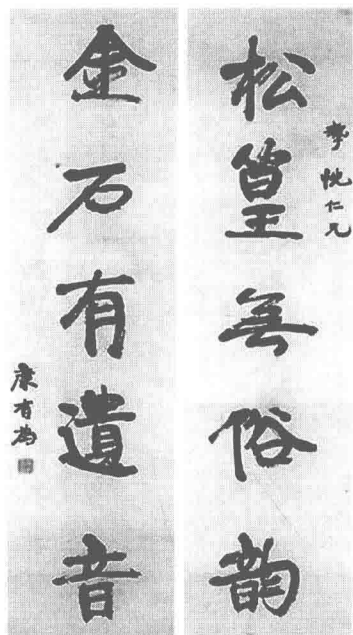 松篁無俗韵
忱仁兄
金石有遺音
康有為